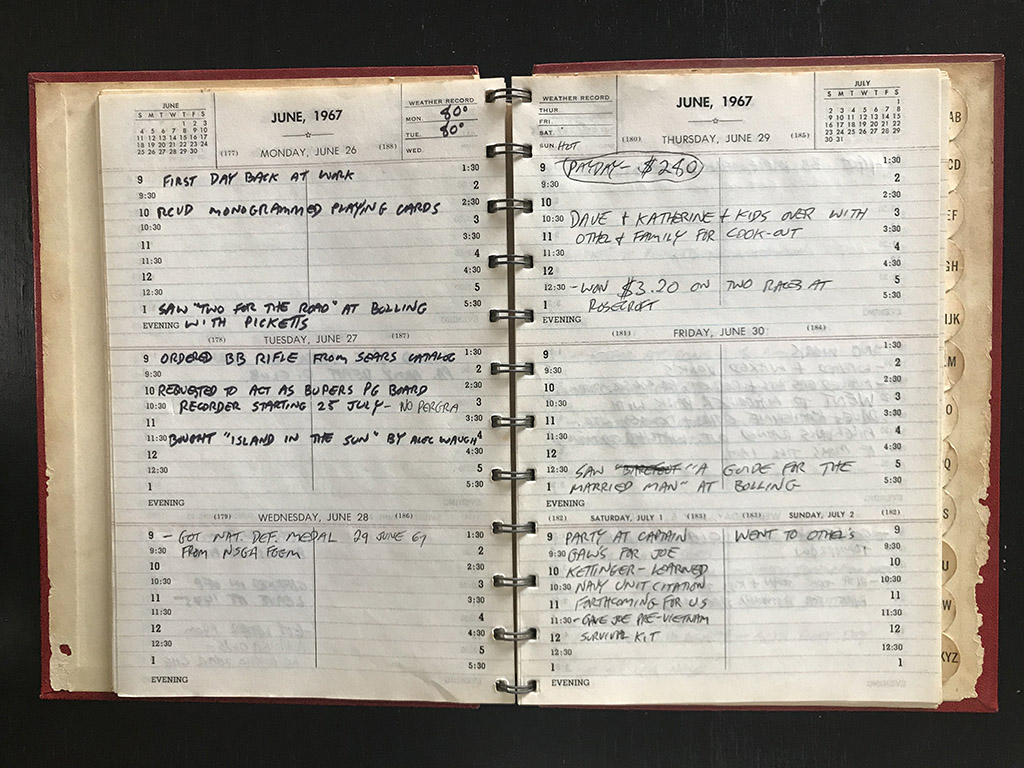 JUNE
S M T W T F S
1 2 3
4 5 6 7 8 9 10
11 12 13 14 15 16 17
18 19 20 21 22 23 24
25 26 27 28 29 30
JUNE, 1967
WEATHER RECORD
MON. 80°
TUE. 80°
WED.
(177) MONDAY, JUNE 26 (188)
9 FIRST DAY BACK AT WORK 1:30
9:30 2
10 RCVD MONOGRAMMED PLAYING CARDS 2:30
10:30 3
11 3:30
11:30 4
12 4:30
12:30 5
1 SAW "TWO FOR THE ROAD" AT BOLLING 5:30
EVENING WITH PICKETTS
(178) TUESDAY, JUNE 27 (187)
9 ORDERED BB RIFLE FROM SEARS CATALOG 1:30
9:30 2
10 REQUESTED TO ACT AS BUPERS PG BOARD 2:30
10:30 RECORDER STARTING 25 JULY - NO PERGRA 3
11 3:30
11:30 BOUGHT "ISLAND IN THE SUN" BY ALEC WAUGH 4
12 4:30
12:30 5
1 5:30
EVENING
(179) WEDNESDAY, JUNE 28 (186)
9 - GOT NAT. DEF. MEDAL 29 JUNE 67 1:30
9:30 FROM NSGA FGEM 2
10 2:30
10:30 3
11 3:30
11:30 4
12 4:30
12:30 5
1 5:30
EVENING
WEATHER RECORD
THUR.
FRI.
SAT.
SUN. HOT
JUNE, 1967
JULY
S M T W T F S
1
2 3 4 5 6 7 8
9 10 11 12 13 14 15
16 17 18 19 20 21 22
23 24 25 26 27 28 29
30 31
(180) THURSDAY, JUNE 29 (185)
9 PAYDAY - $280 1:30
9:30 2
10 2:30
10:30 DAVE + KATHERINE + KIDS OVER WITH 3
11 OTHEL + FAMILY FOR COOK-OUT 3:30
11:30 4
12 4:30
12:30 - WON $3.20 ON TWO RACES AT 5
1 ROSECROFT 5:30
EVENING
(181) FRIDAY, JUNE 30 (184)
9 1:30
9:30 2
10 2:30
10:30 3
11 3:30
11:30 4
12 4:30
12:30 SAW "BAREFOOT" "A GUIDE FOR THE 5
1 MARRIED MAN" AT BOLLING 5:30
EVENING
(182) SATURDAY, JULY 1 (183) (183) SUNDAY, JULY 2 (182)
9 PARTY AT CAPTAIN WENT TO OTHEL'S 9
9:30 GAW'S FOR JOE 9:30
10 KETTINGER - LEARNED 10
10:30 NAVY UNIT CITATION 10:30
11 FORTHCOMING FOR US 11
11:30 - GAVE JOE PRE-VIETNAM 11:30
12 SURVIVAL KIT 12
12:30 12:30
1 1
EVENING
AB
CD
EF
GH
IJK
LM
O
Q
S
U
W
XYZ